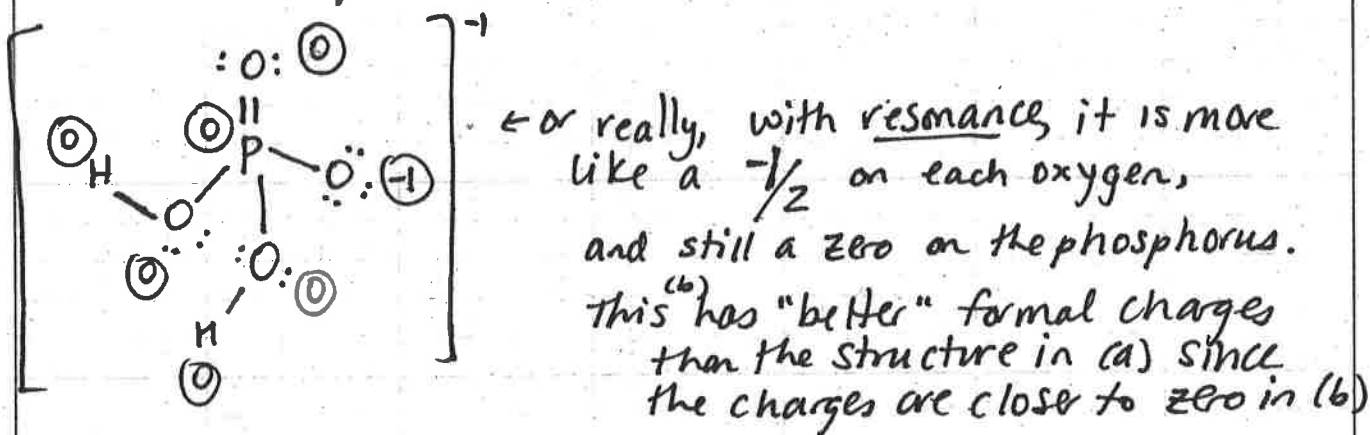 -1
:O: 0
0 0 || ← or really, with resonance, it is more
H P O: -1 like a -1/2 on each oxygen,
O and still a zero on the phosphorus.
0 :O: 0 This (b) has "better" formal charges
H than the structure in (a) since
0 the charges are closer to zero in (b)